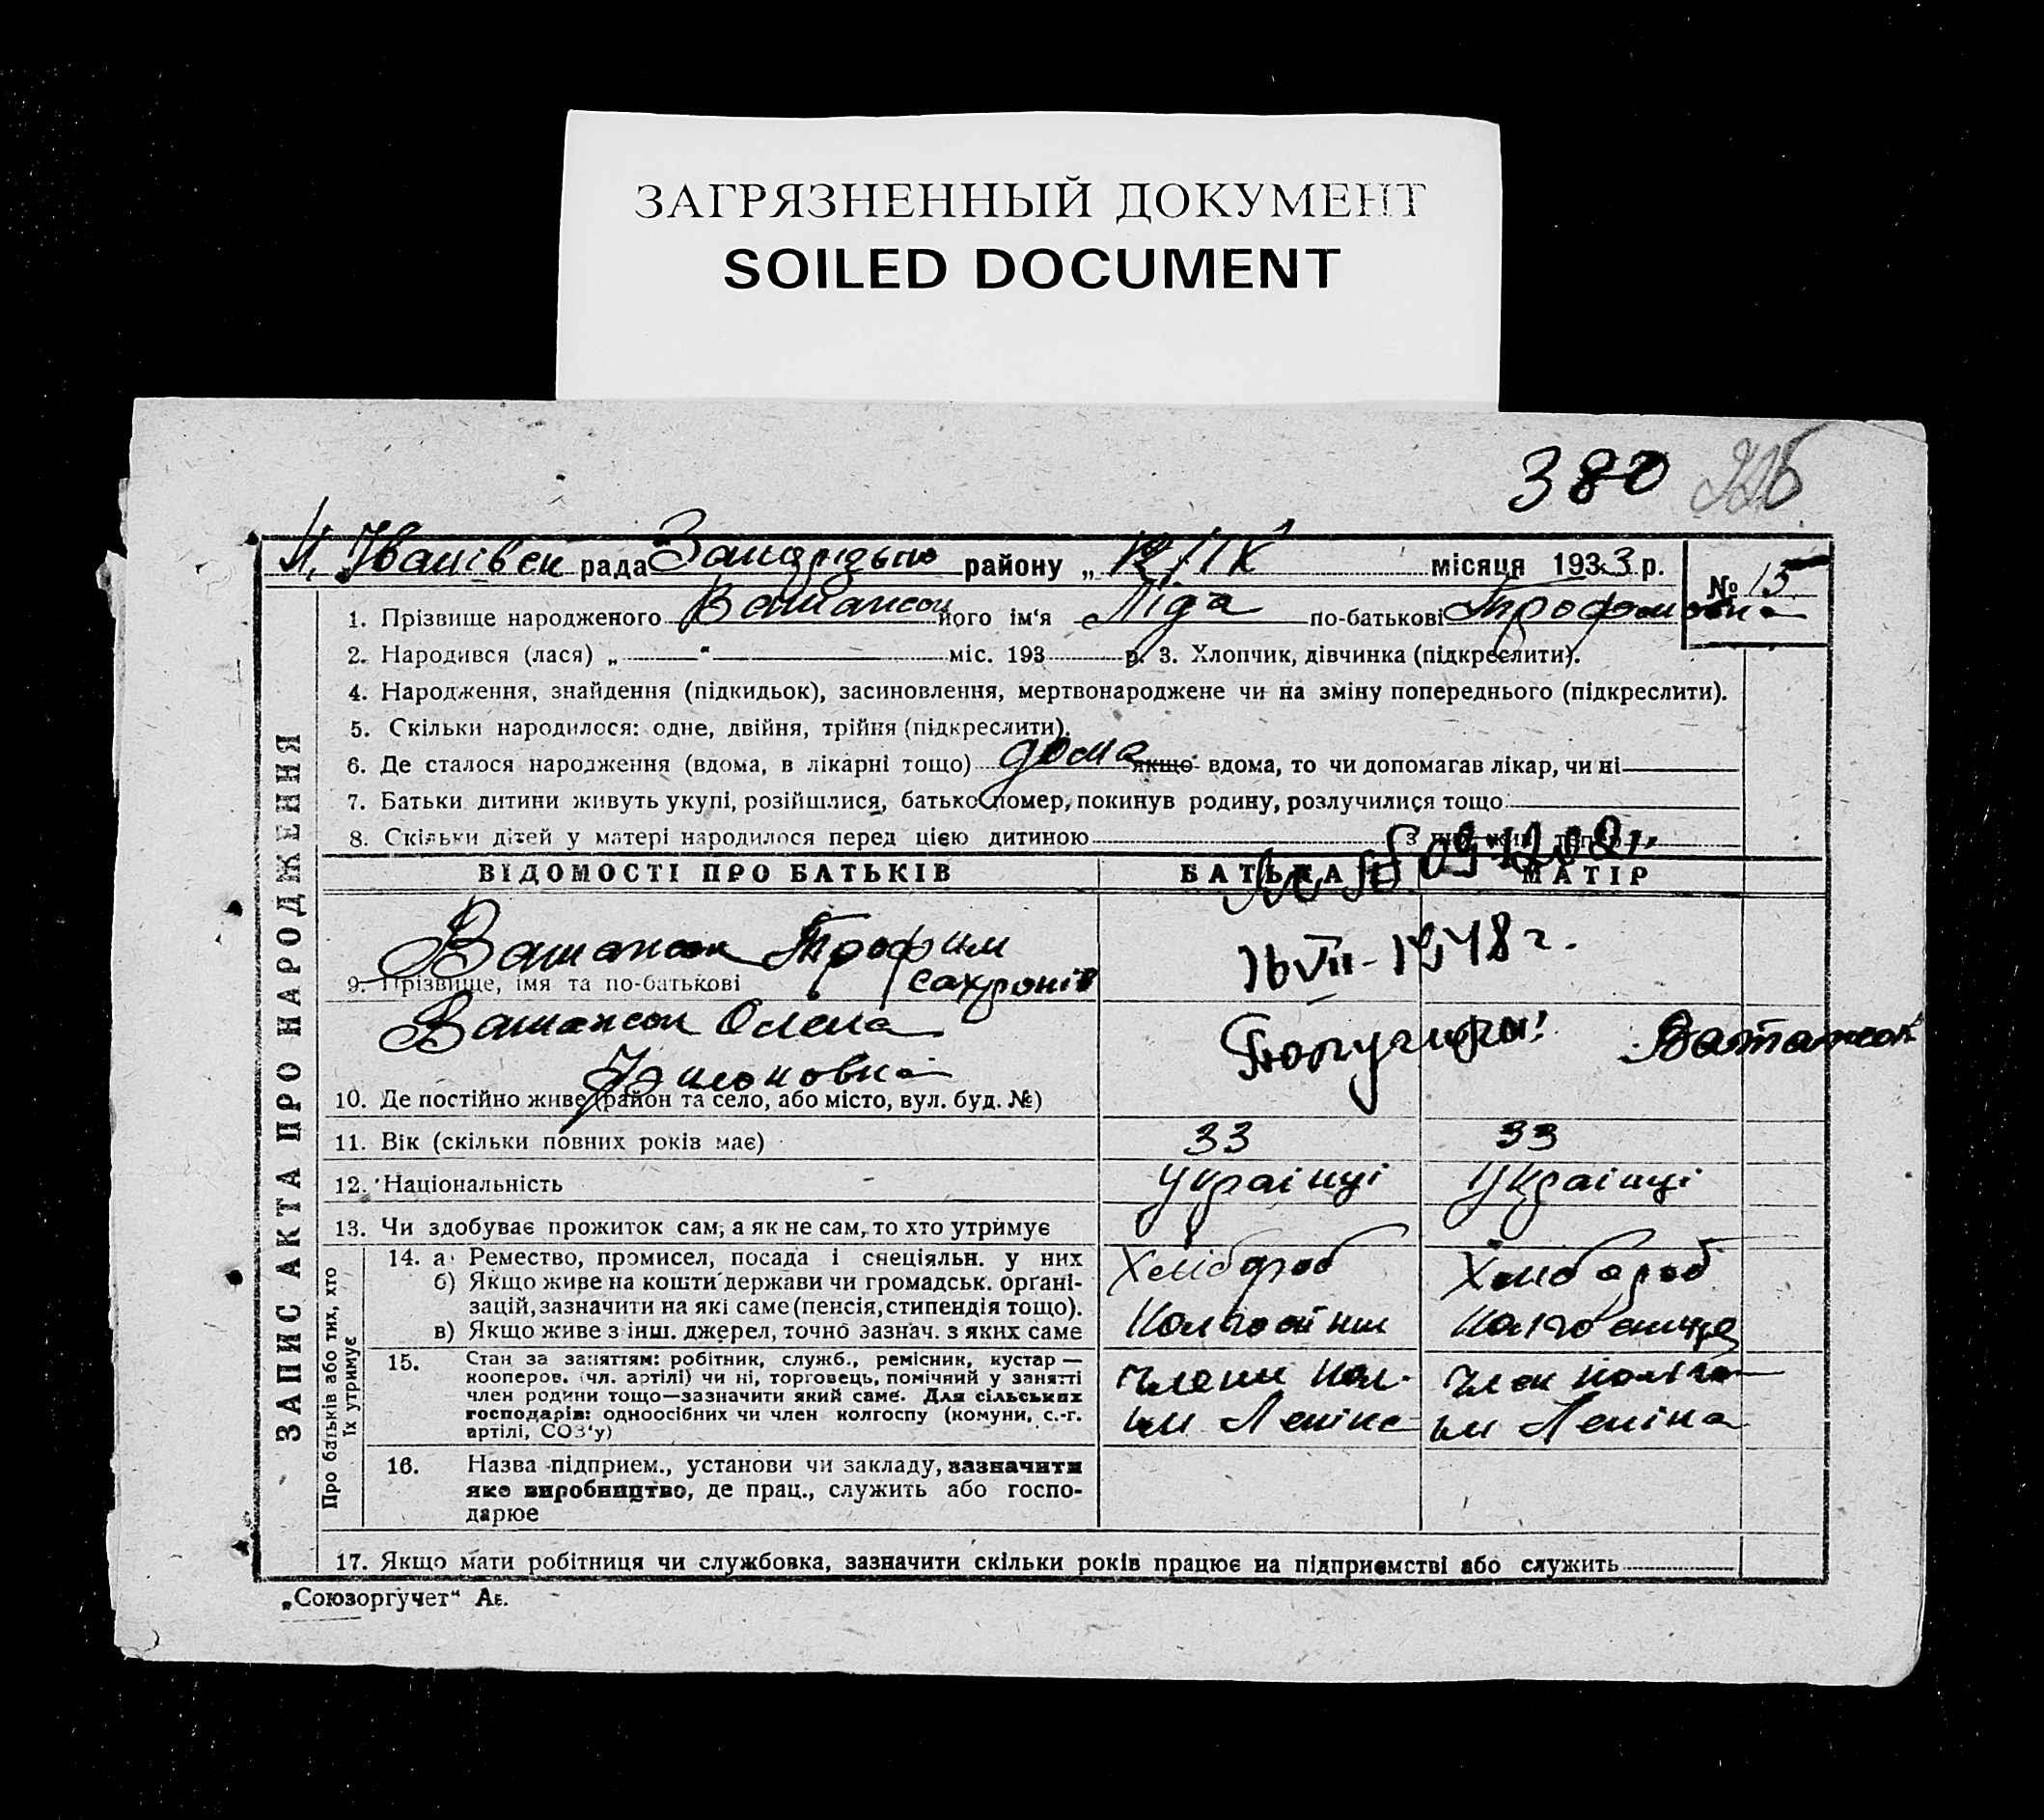 ЗАГРЯЗНЕННЫЙ ДОКУМЕНТ
SOILED DOCUMENT
380
рада району „12/IX місяця 1933 р.
№ 15
1. Прізвище народженого Ватансок його ім'я Ліда по-батькові Трофимовна
2. Народився (лася) „ “ міс. 193 р. 3. Хлопчик, дівчинка (підкреслити).
4. Народження, знайдення (підкидьок), засиновлення, мертвонароджене чи на зміну попереднього (підкреслити).
5. Скільки народилося: одне, двійня, трійня (підкреслити).
6. Де сталося народження (вдома, в лікарні тощо) дома якщо вдома, то чи допомагав лікар, чи ні
7. Батьки дитини живуть укупі, розійшлися, батько помер, покинув родину, розлучилися тощо
8. Скільки дітей у матері народилося перед цією дитиною
ЗАПИС АКТА ПРО НАРОДЖЕННЯ
ВІДОМОСТІ ПРО БАТЬКІВ БАТЬКА МАТІР
Трофим
9. Прізвище, імя та по-батькові
VII-1948 г.
Олена
10. Де постійно живе (район та село, або місто, вул. буд. №)
11. Вік (скільки повних років має) 33 33
12. Національність Українці Українці
13. Чи здобуває прожиток сам, а як не сам, то хто утримує
Про батьків або тих, хто їх утримує
14. а Ремество, промисел, посада і спеціяльн. у них Хлібороб Хлібороб
б) Якщо живе на кошти держави чи громадськ. орґані-
зацій, зазначити на які саме (пенсія, стипендія тощо).
в) Якщо живе з інш. джерел, точно зазнач. з яких саме
15. Стан за заняттям: робітник, служб., ремісник, кустар —
кооперов. (чл. артілі) чи ні, торговець, помічний у занятті
член родини тощо—зазначити який саме. Для сільських
господарів: одноосібних чи член колгоспу (комуни, с.-г.
артілі, СОЗ'у)
члени кол. член
ім Леніна ім Леніна
16. Назва підприєм., установи чи закладу, зазначити
яке виробництво, де прац., служить або госпо-
дарює
17. Якщо мати робітниця чи службовка, зазначити скільки років працює на підприємстві або служить
„Союзоргучет“